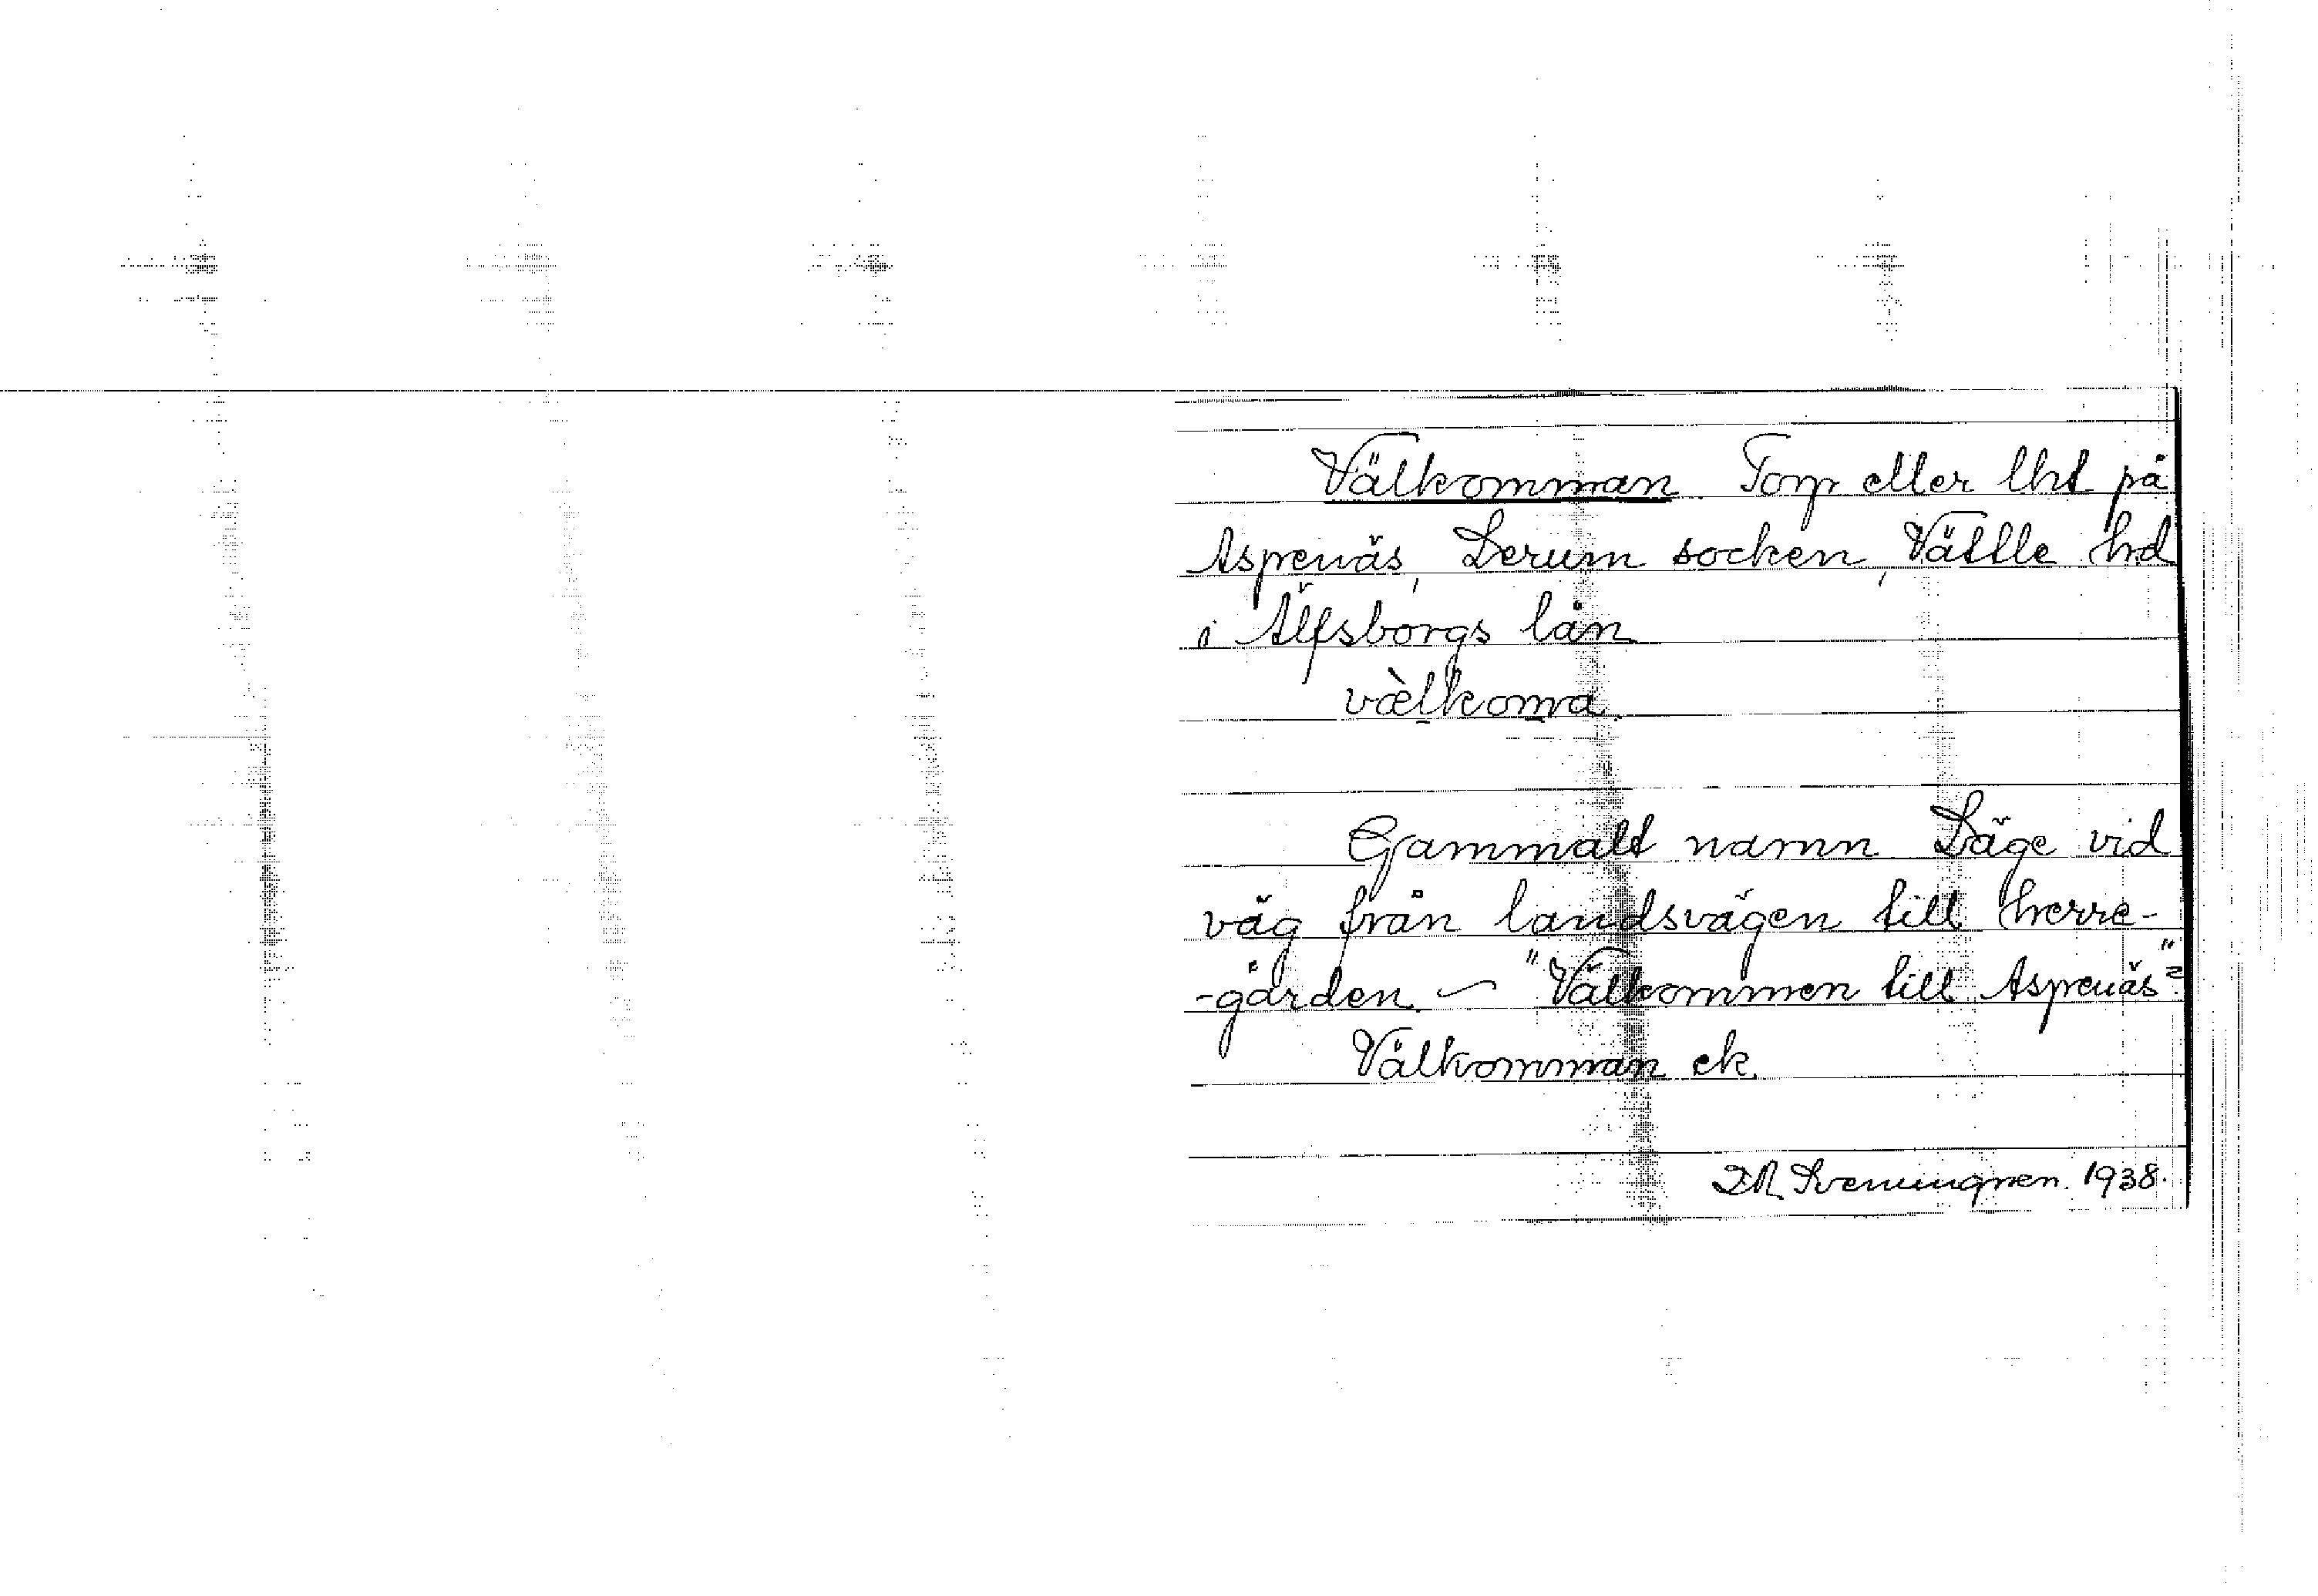 Välkomman Torp eller lht på
Aspenäs, Lerum socken, Vättle hd
i Älfsborgs län
vælkoma.
Gammalt namn Läge vid
väg från landsvägen till herre-
-gården — "Välkommen till Aspenäs"
Välkomman ek.
1938.